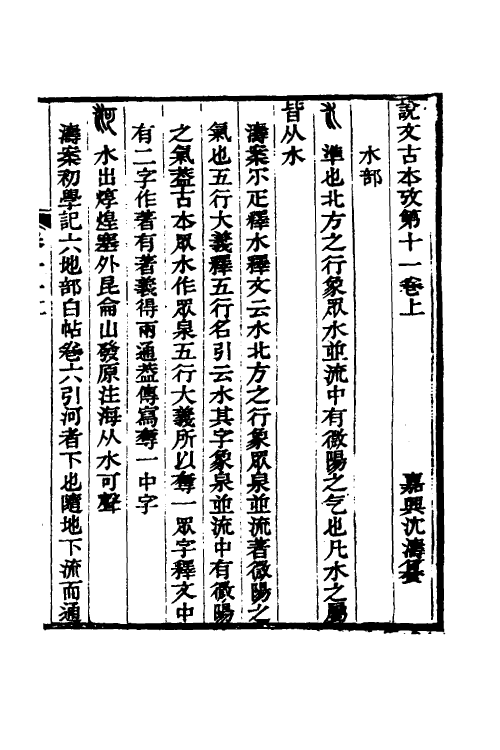 說文古本攷第十一卷上　嘉興沈濤纂
水部
準也北方之行象眾水並流中有微陽之气也凡水之屬
皆从水
濤案不正釋水釋文云水北方之行象眾泉並流著微陽之
氣也五行大義釋五行名引云水其字象泉並流中有微陽
之氣葢古本眾水作眾泉五行大義所以奪一眾字釋文中
有二字作著有著義得兩通葢傳寫奪一中字
河　水出焞煌塞外昆侖山發原注海从水可聲
濤案初學記六地部白帖卷六引河者下也隨地下流而通